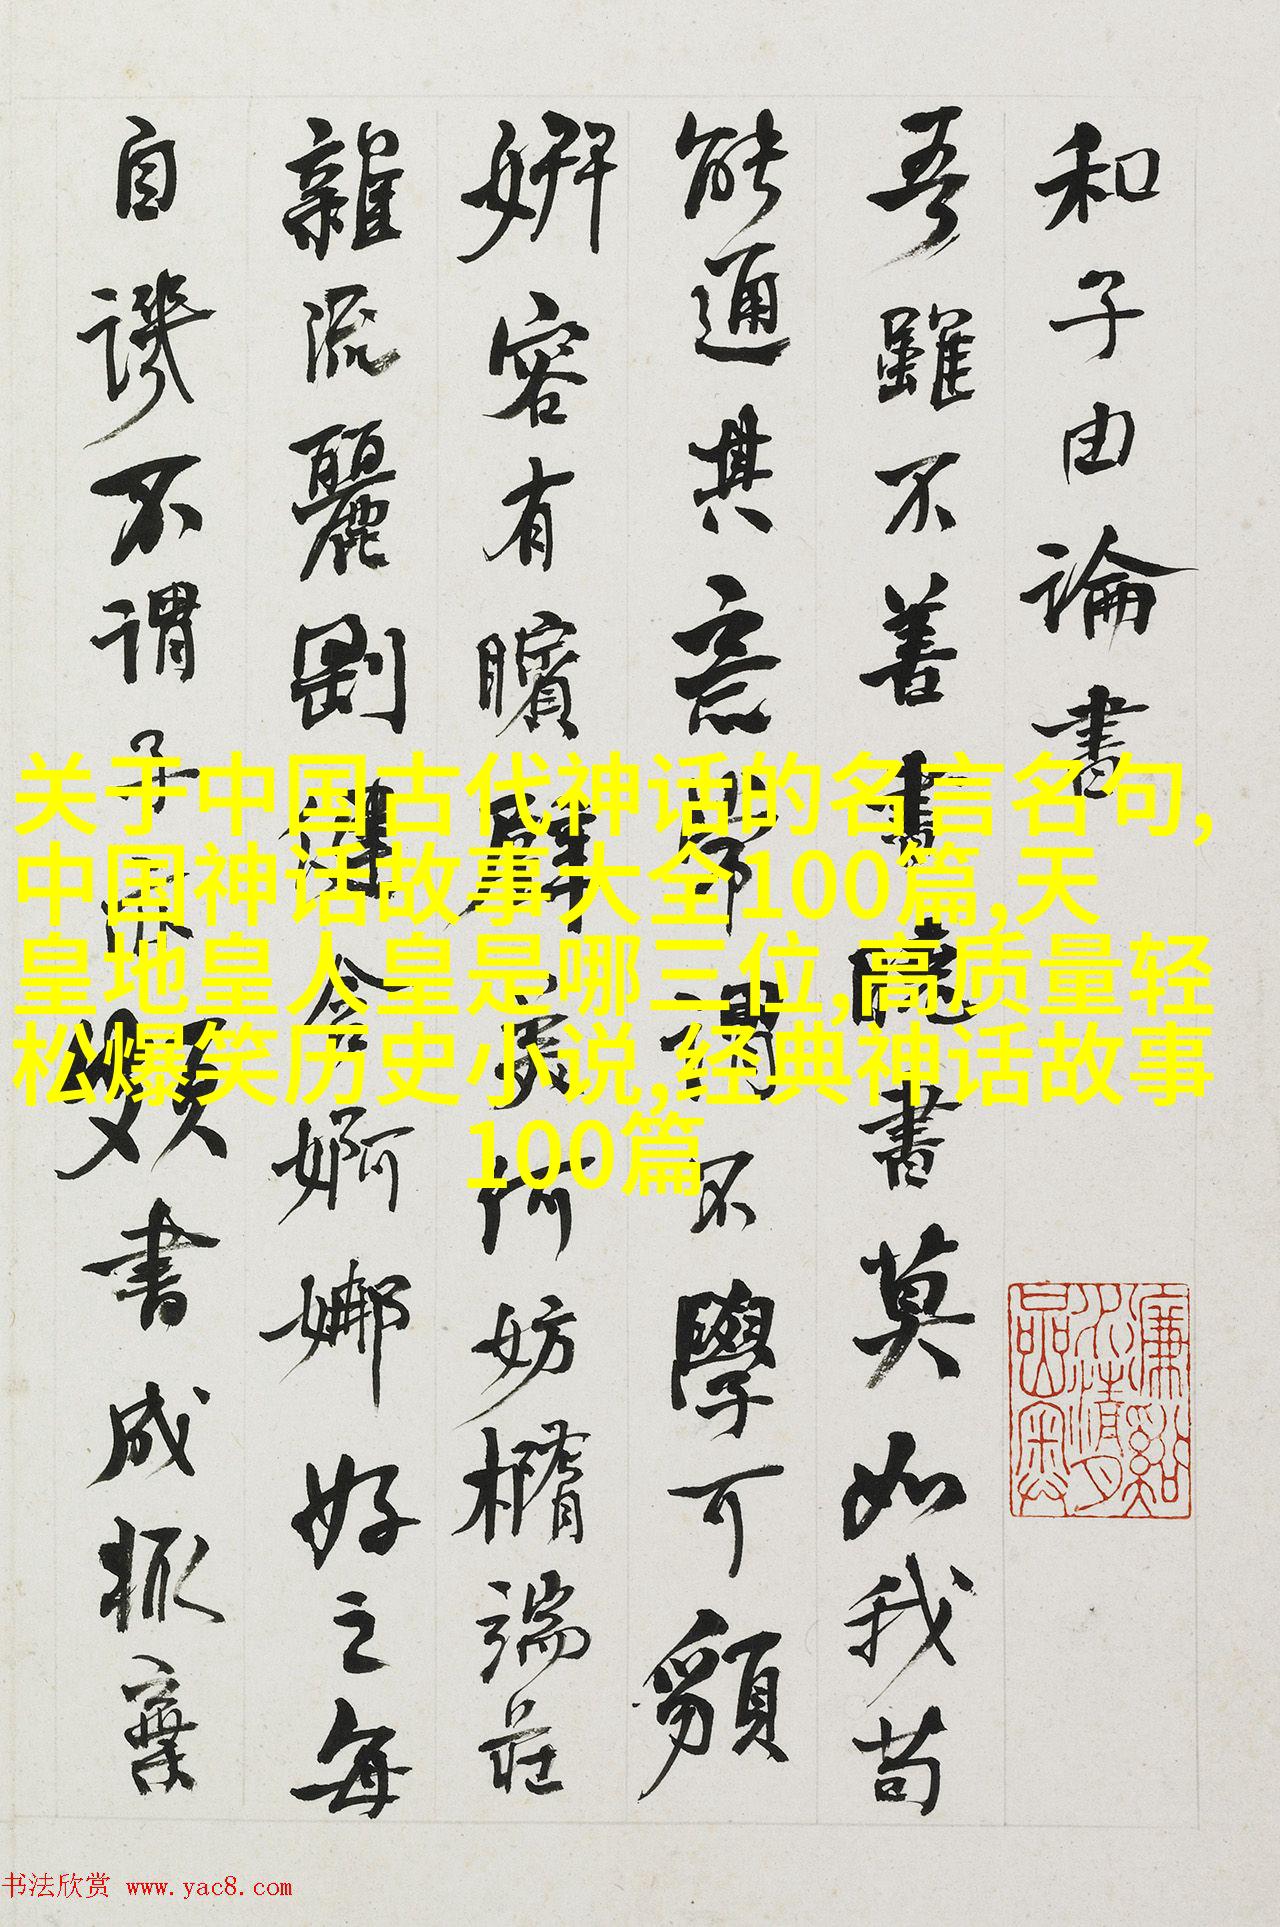 和子由論書
吾雖不善書曉書莫如我苟
能通其意常謂不學可䫉
妍容有矉璧美何妨橢端莊
雜流麗剛健含婀娜好之每
自譏不謂子亦頗書成輒棄
关于中国古代神话的名言名句,
中国神话故事大全100篇,天
皇地皇人皇是哪三位,高质量轻
松爆笑历史小说,经典神话故事
100篇
书法欣赏 www.yac8.com